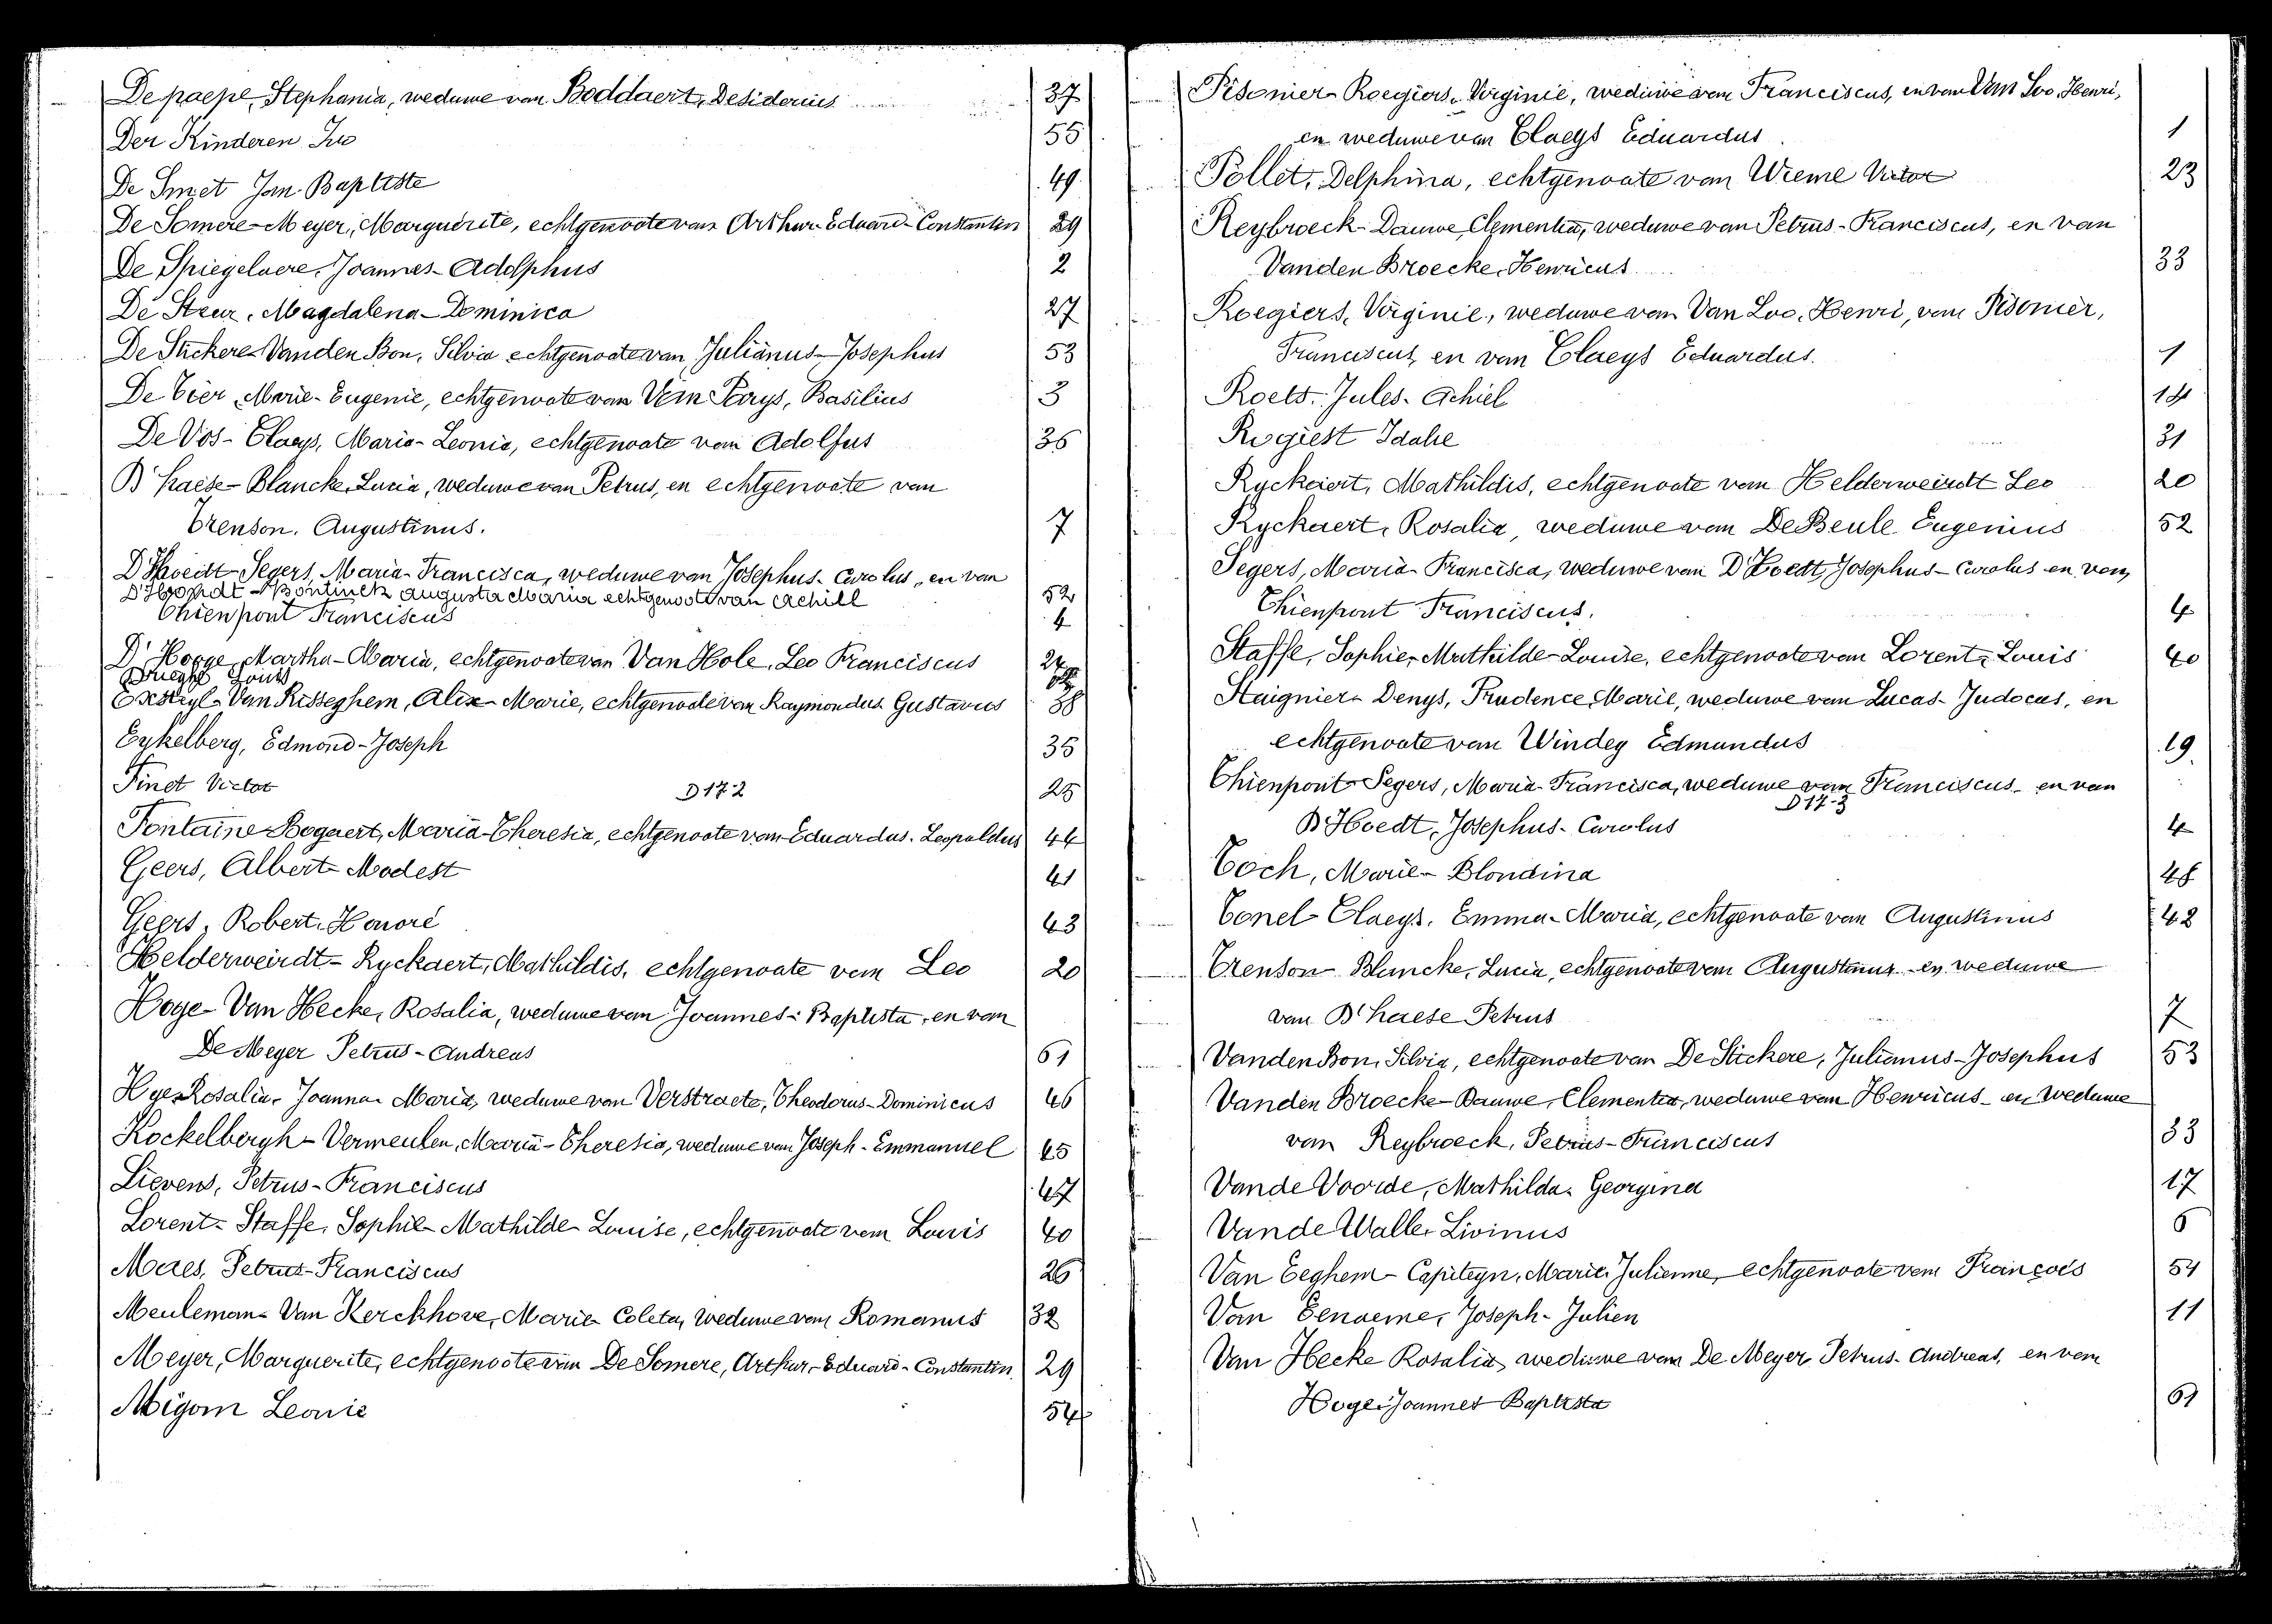 Depaepe, Stephania, weduwe van Boddaert, Desiderius 37
Der Kinderen Ivo 55
De Smet Jan Baptiste 49
De Somere-Meyer, Marguérite, echtgenoote van Arthur-Eduard-Constantin 29
De Spiegelaere, Joannes-Adolphus 2
De Steur, Magdalena-Dominica 27
De Stickere-Vanden Bon, Silvia echtgenoote van Julianus-Josephus 53
De Tier, Marie-Eugenie, echtgenoote van Van Parys, Basilius 3
De Vos-Claeys, Maria-Leonie, echtgenoote van Adolfus 36
D'haese-Blancke, Lucia, weduwe van Petrus, en echtgenoote van
Trenson, Augustinus. 7
D'Hoedt-Segers, Maria-Francisca, weduwe van Josephus-Carolus, en van
D'Hondt-Bontinck augusta Maria echtgenoote van Achill 52
Thienpont Franciscus 4
D'Hooge, Martha-Maria, echtgenoote van Van Hole, Leo Franciscus
Louis
Van Risseghem, Alix-Marie, echtgenoote van Raymondus Gustavus 38
Eykelberg, Edmond-Joseph 35
Finet Victor D172 25
Fontaine-Bogaert, Maria-Theresia, echtgenoote van Eduardus-Leopoldus 44
Geers, Albert-Modest 41
Geers, Robert-Honoré 43
Helderweirdt-Ryckaert, Mathildis, echtgenoote van Leo 20
Hoge-Van Hecke, Rosalia, weduwe van Joannes-Baptista, en van
De Meyer Petrus-Andreas 51
Hye, Rosalia-Joanna-Maria, weduwe van Verstraete, Theodorus-Dominicus 46
Kockelbergh-Vermeulen, Maria-Theresia, weduwe van Joseph-Emmanuel 45
Lievens, Petrus-Franciscus 47
Lorent-Staffe, Sophie-Mathilde-Louise, echtgenoote van Louis 40
Maes, Petrus-Franciscus 26
Meuleman-Van Kerckhove, Marie-Coleta, weduwe van Romanus 32
Meyer, Marguerite, echtgenoote van De Somere, Arthur-Eduard-Constantin 29
Migom Leonie 54
Pisonier-Roegiers, Virginie, weduwe van Franciscus, en van Van Loo, Henri,
en weduwe van Claeys Eduardus 1
Pollet, Delphina, echtgenoote van Wieme Victor 23
Reybroeck-Dauwe, Clementia, weduwe van Petrus-Franciscus, en van
Vanden Broecke, Henricus 33
Roegiers, Virginie, weduwe van Van Loo, Henri, van Pisonier,
Franciscus, en van Claeys Eduardus. 1
Roets, Jules-Achiel 14
Rogiest Idalie 31
Ryckaert, Mathildis, echtgenoote van Helderweirdt Leo 20
Ryckaert, Rosalia, weduwe van De Beule Eugenius 52
Segers, Maria-Francisca, weduwe van D'Hoedt, Josephus-Carolus en van
Thienpont Franciscus. 4
Staffe, Sophie-Mathilde-Louise, echtgenoote van Lorent, Louis 40
Staignier-Denys, Prudence, Marie, weduwe van Lucas-Judocus, en
echtgenoote van Windey Edmundus 19.
Thienpont-Segers, Maria-Francisca, weduwe van Franciscus en van
D17-3
D'Hoedt, Josephus-Carolus 4
Toch, Marie-Blondina 48
Tonel-Claeys, Emma-Maria, echtgenoote van Augustinus 42
Trenson-Blancke, Lucia, echtgenoote van Augustinus en weduwe
van D'haese Petrus 7
Vanden Bon, Silvia, echtgenoote van De Stickere, Julianus-Josephus 53
Vanden Broecke-Dauwe, Clementia, weduwe van Henricus en weduwe
van Reybroeck, Petrus-Franciscus 33
Vande Voorde, Mathilda-Georgina 17
Vande Walle, Livinus 6
Van Eeghem-Capiteyn, Marie, Julienne, echtgenoote van François 54
Van Eenaeme, Joseph-Julien 11
Van Hecke Rosalia, weduwe van De Meyer, Petrus-Andreas, en van
Hoge, Joannes Baptista 51